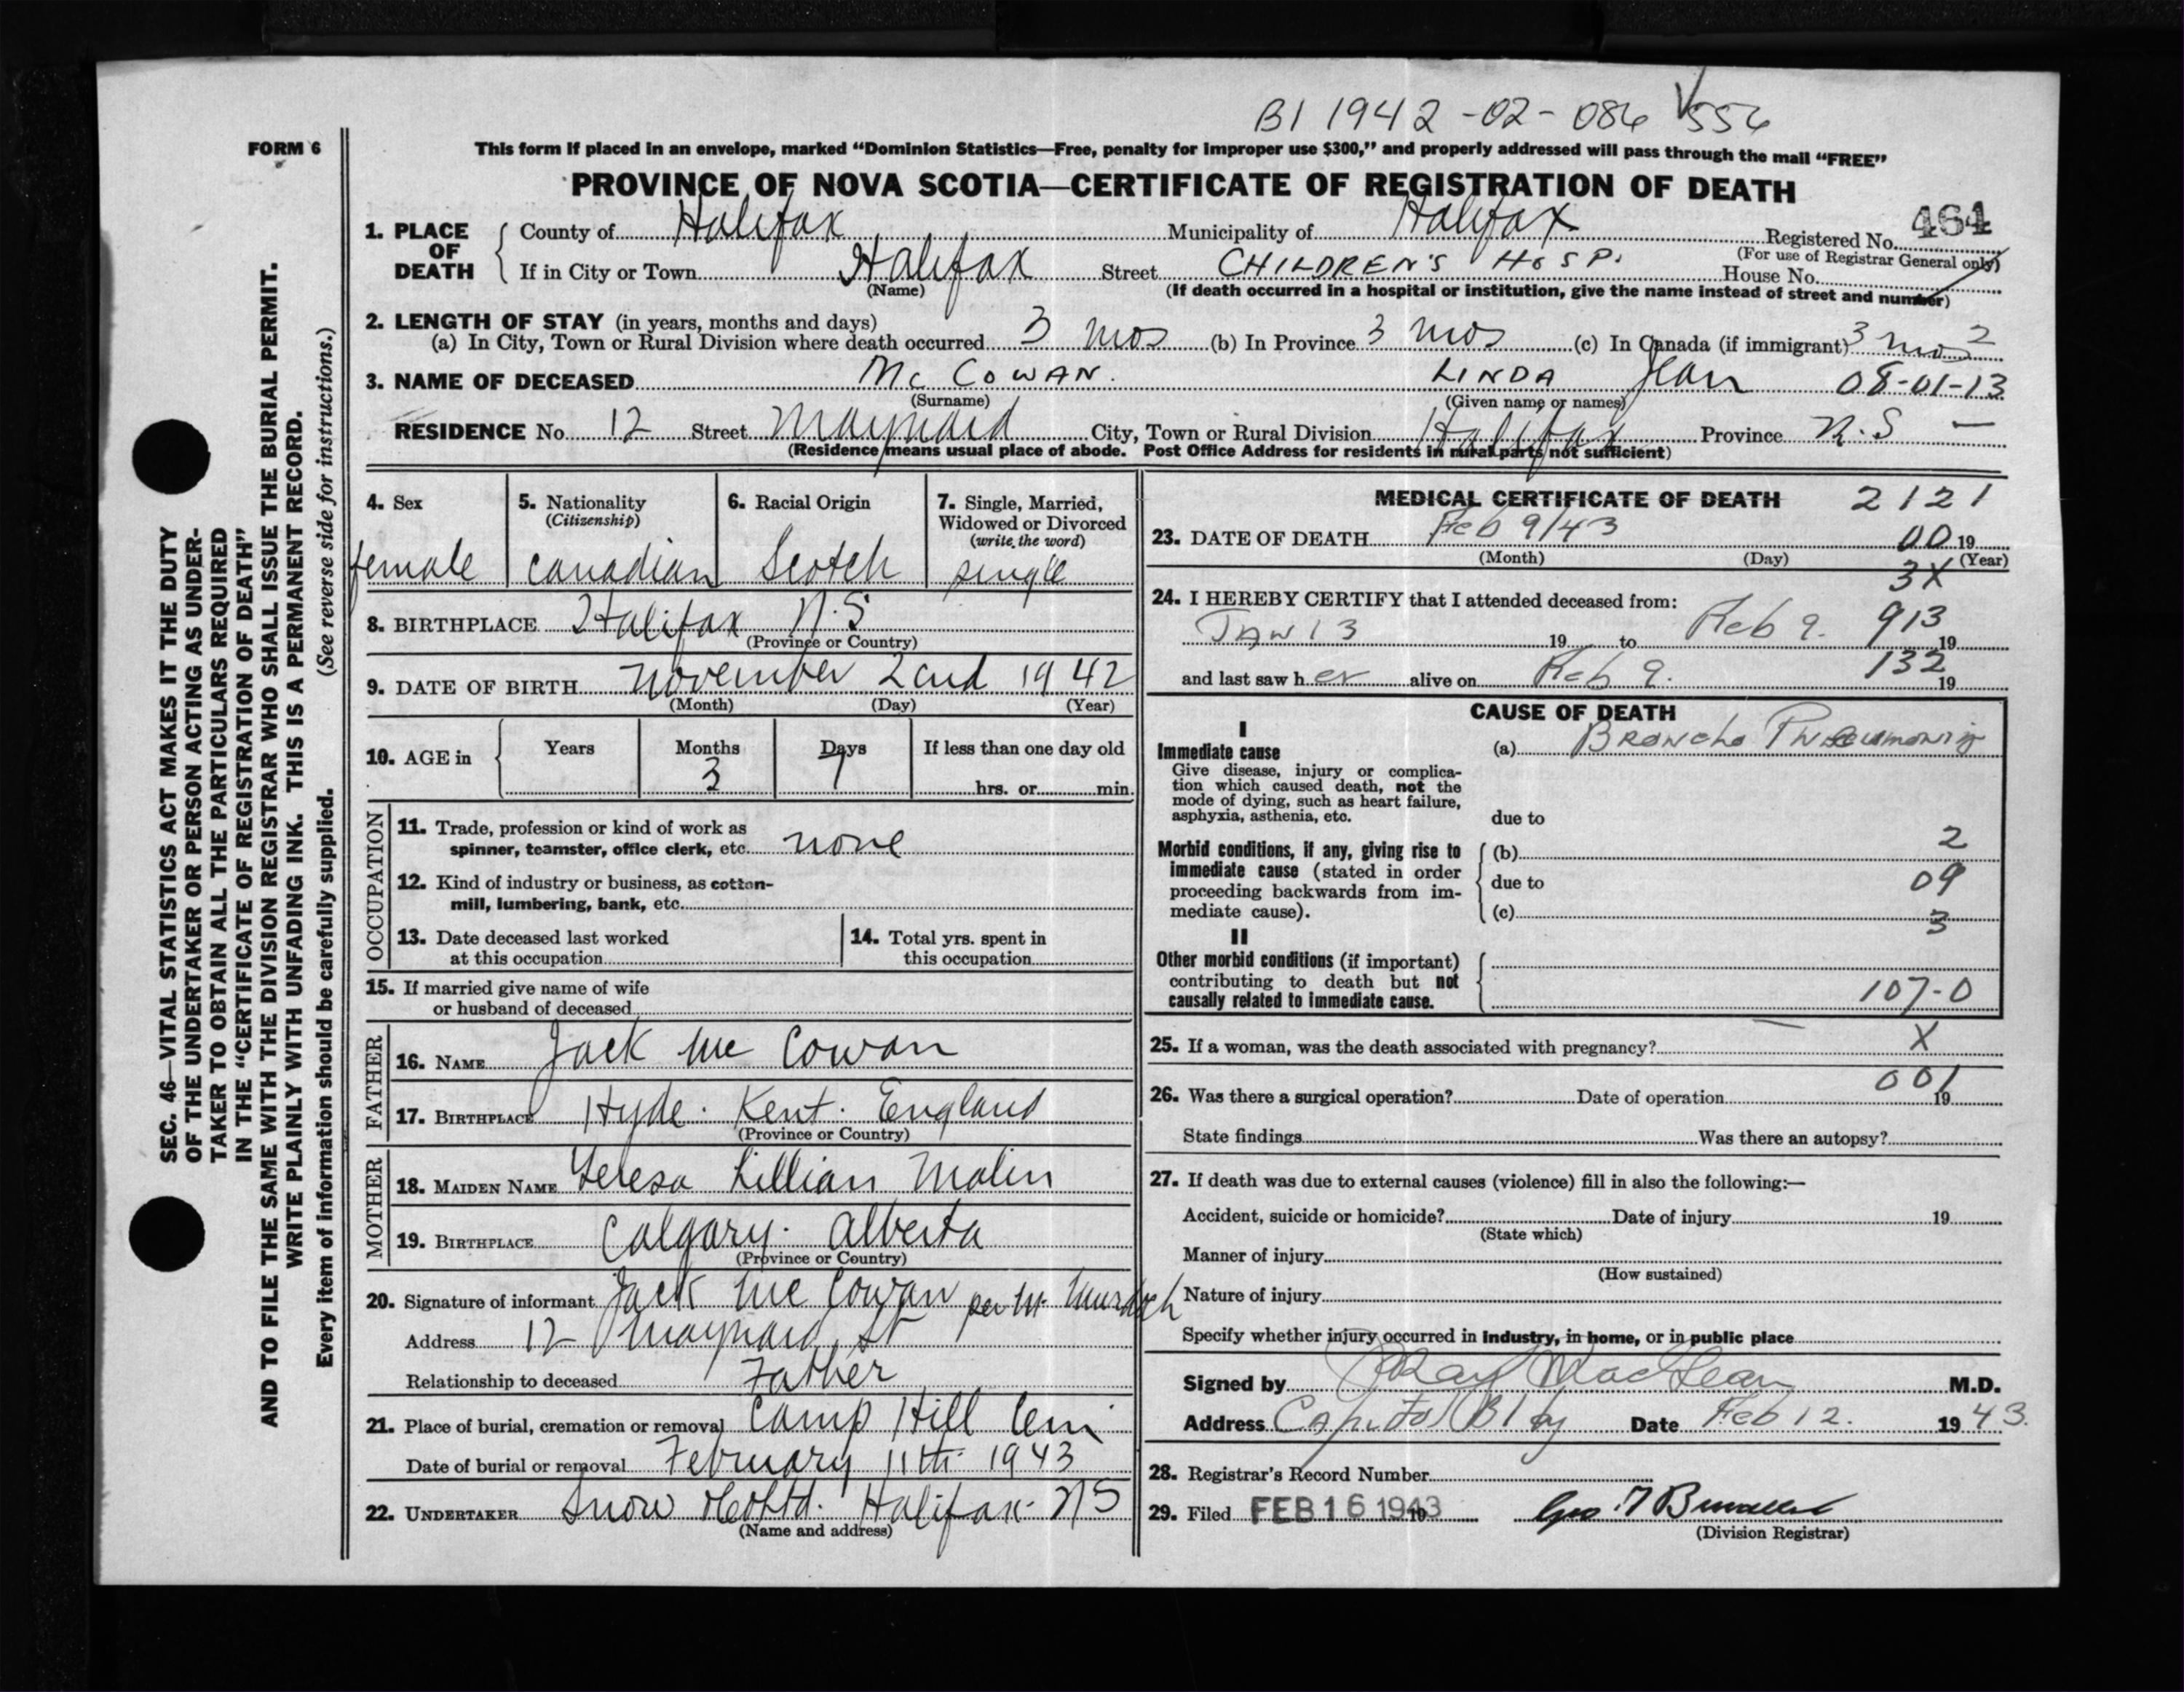 BI 1942-02-086 556
FORM 6
This form if placed in an envelope, marked “Dominion Statistics—Free, penalty for improper use $300,” and properly addressed will pass through the mail “FREE”
PROVINCE OF NOVA SCOTIA—CERTIFICATE OF REGISTRATION OF DEATH
1. PLACE OF DEATH County of Halifax Municipality of Halifax Registered No. 464
(For use of Registrar General only)
If in City or Town Halifax Street CHILDREN'S HOSP. House No.
(Name) (If death occurred in a hospital or institution, give the name instead of street and number)
2. LENGTH OF STAY (in years, months and days)
(a) In City, Town or Rural Division where death occurred 3 mos (b) In Province 3 mos (c) In Canada (if immigrant) 3 mos 2
3. NAME OF DECEASED Mc COWAN. LINDA Jean 08-01-13
(Surname) (Given name or names)
RESIDENCE No. 12 Street Maynard City, Town or Rural Division Halifax Province N.S —
(Residence means usual place of abode. Post Office Address for residents in rural parts not sufficient)
4. Sex
female
5. Nationality
(Citizenship)
Canadian
6. Racial Origin
Scotch
7. Single, Married,
Widowed or Divorced
(write the word)
single
8. BIRTHPLACE Halifax N.S
(Province or Country)
9. DATE OF BIRTH November 2cnd 1942
(Month) (Day) (Year)
10. AGE in Years Months Days If less than one day old
3 7 hrs. or min.
OCCUPATION
11. Trade, profession or kind of work as
spinner, teamster, office clerk, etc. none
12. Kind of industry or business, as cotton-
mill, lumbering, bank, etc.
13. Date deceased last worked
at this occupation
14. Total yrs. spent in
this occupation
15. If married give name of wife
or husband of deceased
FATHER
16. NAME Jack Mc Cowan
17. BIRTHPLACE Hyde. Kent. England
(Province or Country)
MOTHER
18. MAIDEN NAME Teresa Lillian Malin
19. BIRTHPLACE Calgary. Alberta
(Province or Country)
20. Signature of informant Jack Mc Cowan per M. Murdoch
Address 12 Maynard St
Relationship to deceased Father
21. Place of burial, cremation or removal Camp Hill Cem
Date of burial or removal February 11th 1943
22. UNDERTAKER Snow & Co Ltd. Halifax. NS
(Name and address)
MEDICAL CERTIFICATE OF DEATH 2121
23. DATE OF DEATH Feb 9/43 00 19
(Month) (Day) (Year)
3X
24. I HEREBY CERTIFY that I attended deceased from:
JAN 13 19 to Feb 9. 913 19
and last saw her alive on Feb 9. 132 19
CAUSE OF DEATH
I
Immediate cause (a) Broncho Pneumonia
Give disease, injury or complica-
tion which caused death, not the
mode of dying, such as heart failure,
asphyxia, asthenia, etc. due to
Morbid conditions, if any, giving rise to (b) 2
immediate cause (stated in order due to 09
proceeding backwards from im-
mediate cause). (c) 3
II
Other morbid conditions (if important)
contributing to death but not
causally related to immediate cause. 107-0
25. If a woman, was the death associated with pregnancy? X
001
26. Was there a surgical operation? Date of operation 19
State findings Was there an autopsy?
27. If death was due to external causes (violence) fill in also the following:—
Accident, suicide or homicide? Date of injury 19
(State which)
Manner of injury
(How sustained)
Nature of injury
Specify whether injury occurred in industry, in home, or in public place
Signed by MacLean M.D.
Address Capitol Bldg Date Feb 12. 1943.
28. Registrar's Record Number
29. Filed FEB 16 1943
(Division Registrar)
SEC. 46—VITAL STATISTICS ACT MAKES IT THE DUTY
OF THE UNDERTAKER OR PERSON ACTING AS UNDER-
TAKER TO OBTAIN ALL THE PARTICULARS REQUIRED
IN THE “CERTIFICATE OF REGISTRATION OF DEATH”
AND TO FILE THE SAME WITH THE DIVISION REGISTRAR WHO SHALL ISSUE THE BURIAL PERMIT.
WRITE PLAINLY WITH UNFADING INK. THIS IS A PERMANENT RECORD.
Every item of information should be carefully supplied. (See reverse side for instructions.)